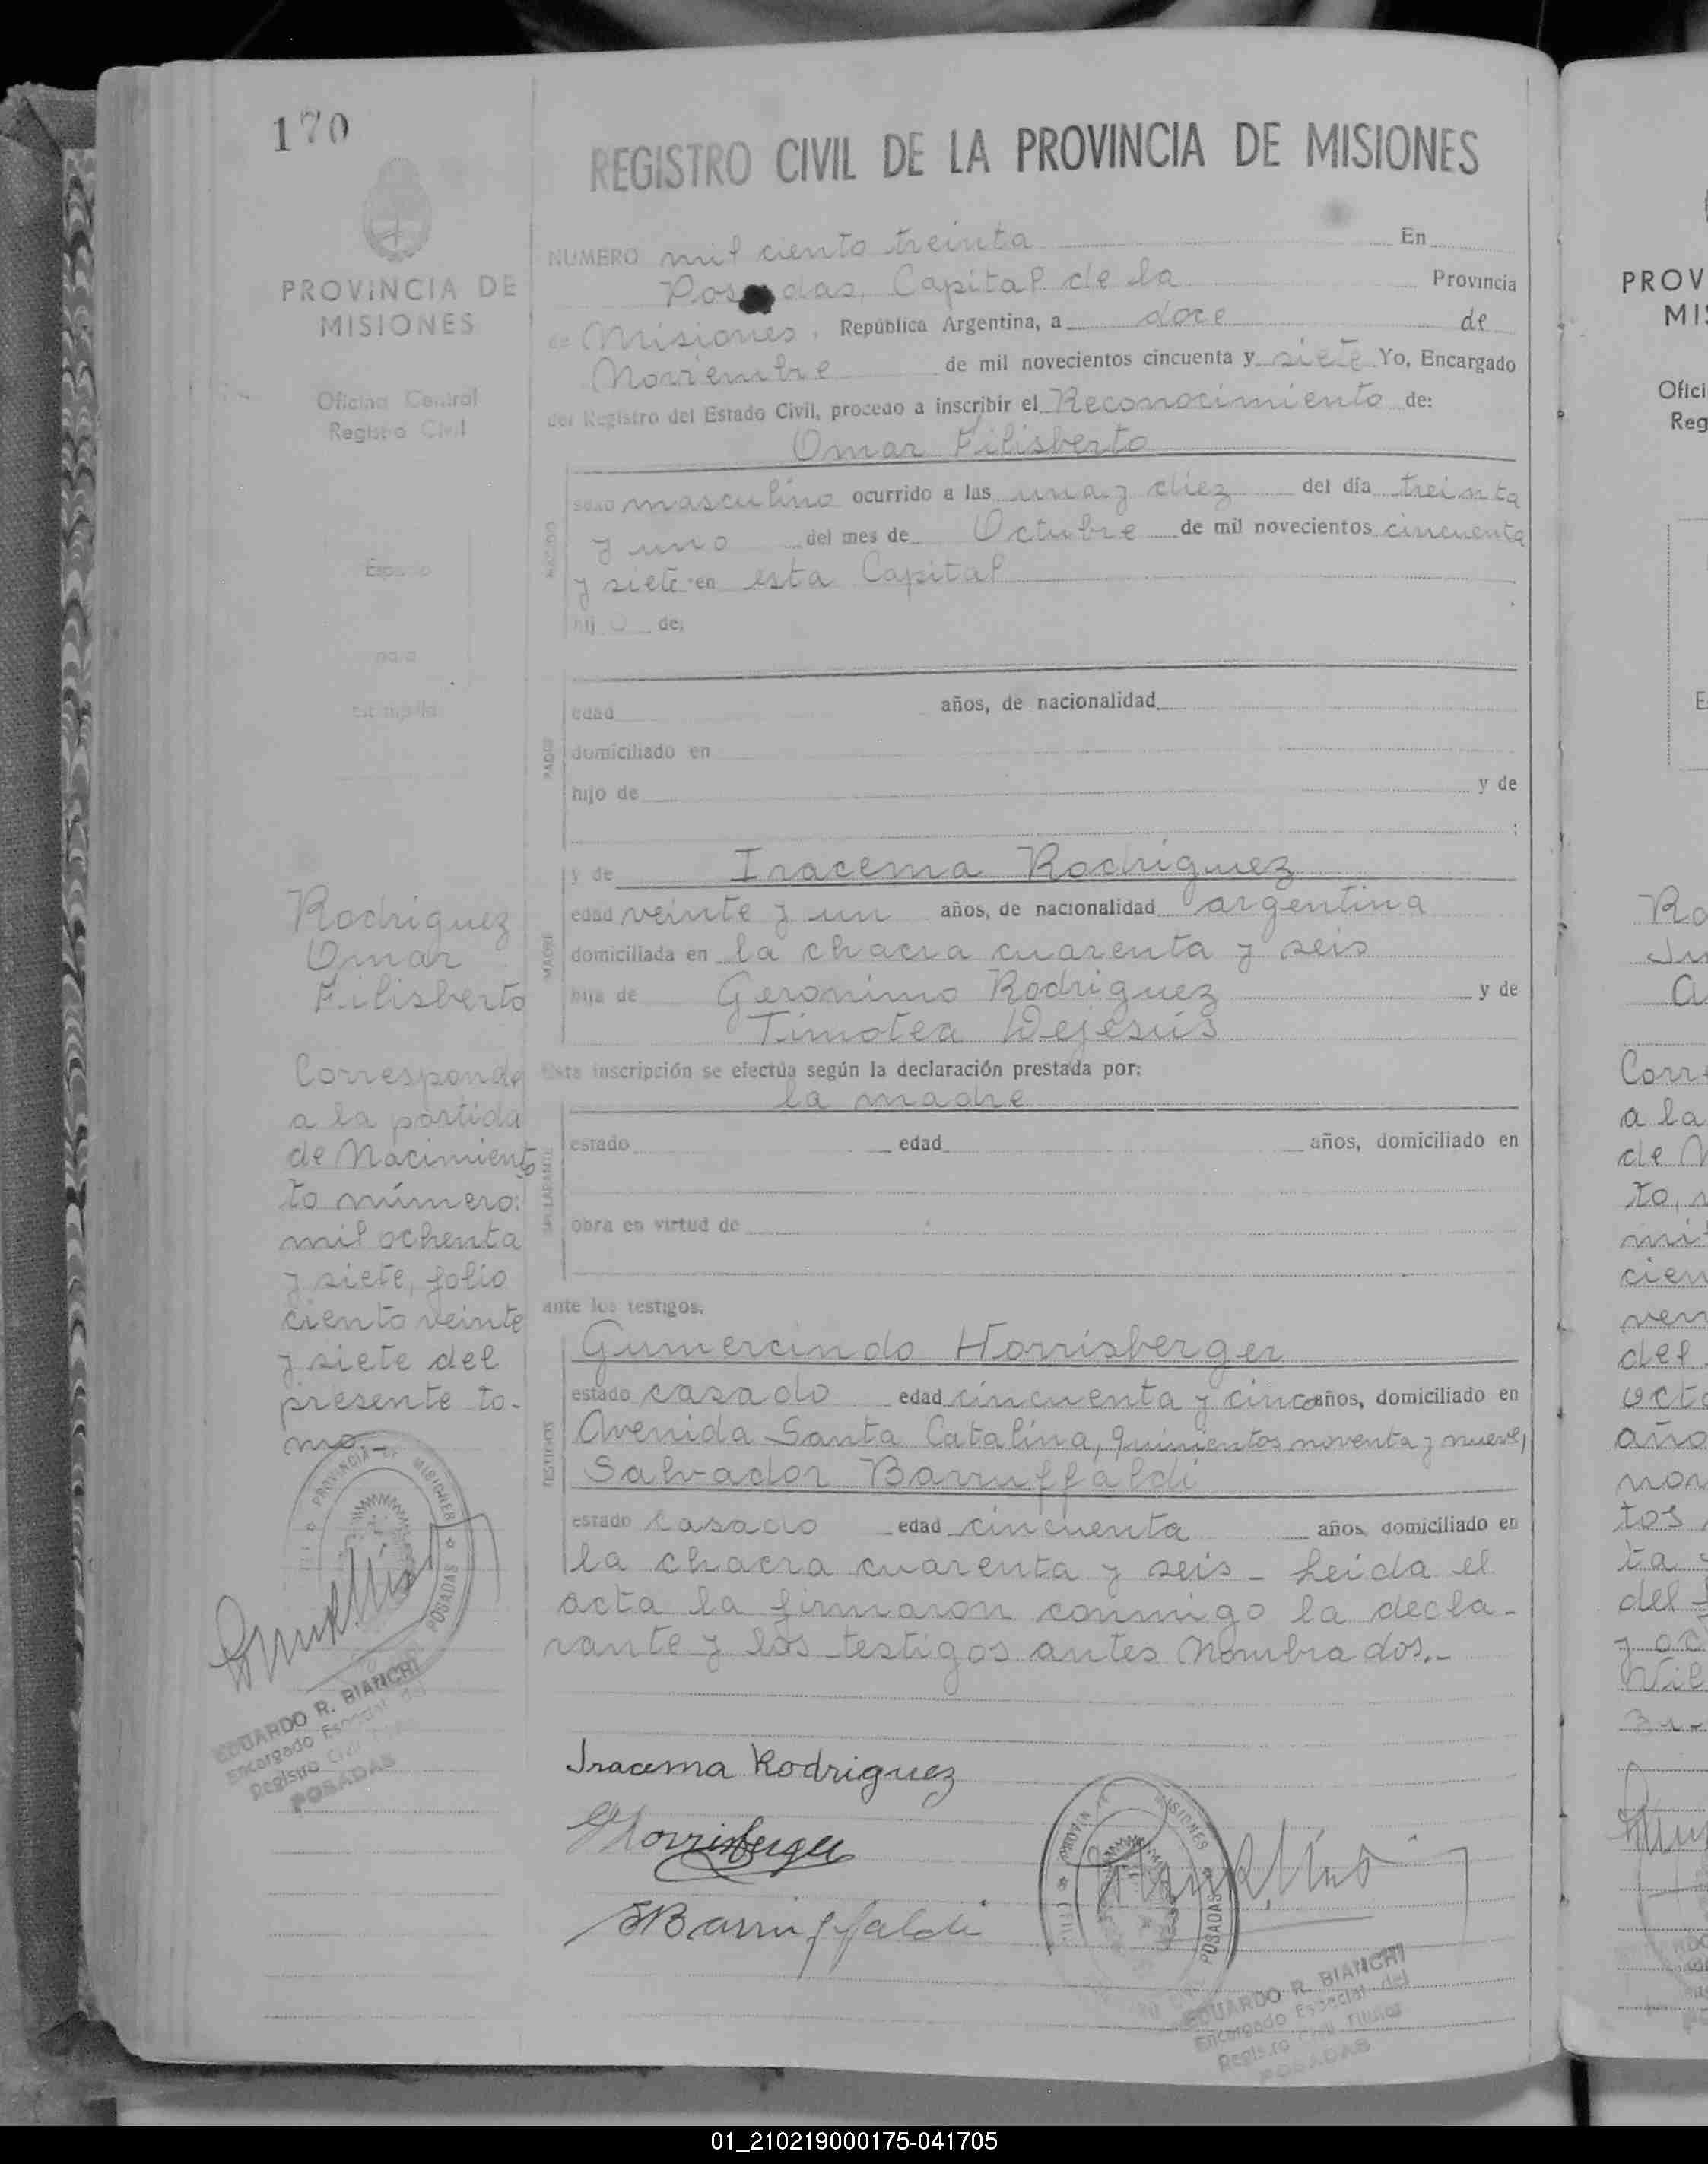 170
REGISTRO CIVIL DE LA PROVINCIA DE MISIONES
PROVINCIA DE
MISIONES
Oficina Central
Registro Civil
NUMERO mil ciento treinta En
Posadas, Capital de la Provincia
de Misiones, República Argentina, a doce de
Noviembre de mil novecientos cincuenta y siete Yo, Encargado
del Registro del Estado Civil, procedo a inscribir el Reconocimiento de:
Omar Filisberto
NACIDO
sexo masculino ocurrido a las una y diez del día treinta
y uno del mes de Octubre de mil novecientos cincuenta
y siete en esta Capital
hijo de:
Espacio
para
estampilla
PADRE
edad años, de nacionalidad
domiciliado en
hijo de y de
;
y de Iracema Rodriguez
MADRE
edad veinte y un años, de nacionalidad argentina
domiciliada en la chacra cuarenta y seis
hija de Geronimo Rodriguez y de
Timotea Dejesús
Rodriguez
Omar
Filisberto
Corresponde
a la partida
de Nacimien
to número:
mil ochenta
y siete, folio
ciento veinte
y siete del
presente to-
mo.-
Esta inscripción se efectúa según la declaración prestada por:
la madre
DECLARANTE
estado edad años, domiciliado en
obra en virtud de
ante los testigos.
TESTIGOS
Gumercindo Horrisberger
estado casado edad cincuenta y cinco años, domiciliado en
Avenida Santa Catalina, quinientos noventa y nueve,
Salvador Barruffaldi
estado casado edad cincuenta años, domiciliado en
la chacra cuarenta y seis - Leída el
acta la firmaron conmigo la decla-
rante y los testigos antes nombrados.-
Iracema Rodriguez
GHorrisberger
SBarruffaldi
PROVINCIA DE MISIONES
POSADAS
EDUARDO R. BIANCHI
Encargado Especial del
Registro Civil
POSADAS
MISIONES
POSADAS
EDUARDO R. BIANCHI
Encargado Especial del
Registro Civil
POSADAS
PROV
MIS
Ofici
Reg
E
Ro
Corr
a la
de N
to, n
mil
cien
del
octu
año
nov
tos
ta y
del
y oc
01_210219000175-041705